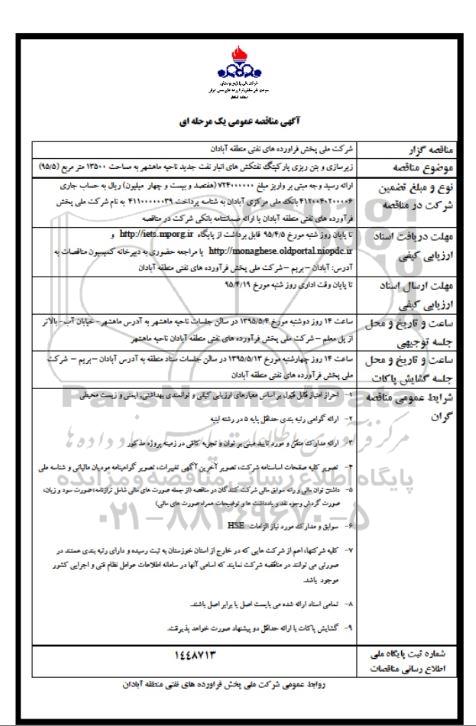 آگهی مناقصه عمومی یک مرحله ای
مناقصه گزار
شرکت ملی پخش فراورده های نفتی منطقه آبادان
موضوع مناقصه
زیرسازی و بتن ریزی پارکینگ نفتکش های انبار نفت جدید ناحیه ماهشهر به مساحت ۱۳۵۰۰ متر مربع (۹۵/۵)
نوع و مبلغ تضمین
شرکت در مناقصه
ارائه رسید وجه مبنی بر واریز مبلغ ۷۲۴۰۰۰۰۰۰ (هفتصد و بیست و چهار میلیون) ریال به حساب جاری
۴۱۲۰۰۴۰۲۰۰۰۰۶ بانک ملی مرکزی آبادان به شناسه پرداخت ۴۱۱۰۰۰۰۰۰۳۹ به نام شرکت ملی پخش
فرآورده های نفتی منطقه آبادان یا ارائه ضمانتنامه بانکی شرکت در مناقصه
مهلت دریافت اسناد
ارزیابی کیفی
تا پایان روز شنبه مورخ ۹۵/۴/۵ قابل برداشت از پایگاه http://iets.mporg.ir و
http://monaghese.oldportal.niopdc.ir یا مراجعه حضوری به دبیرخانه کمیسیون مناقصات به
آدرس: آبادان – بریم – شرکت ملی پخش فرآورده های نفتی منطقه آبادان
مهلت ارسال اسناد
ارزیابی کیفی
تا پایان وقت اداری روز شنبه مورخ ۹۵/۴/۱۹
ساعت و تاریخ و محل
جلسه توجیهی
ساعت ۱۴ روز دوشنبه مورخ ۱۳۹۵/۵/۴ در سالن جلسات ناحیه ماهشهر به آدرس ماهشهر - خیابان آب - بالاتر
از پل معلم – شرکت ملی پخش فرآورده های نفتی منطقه آبادان ناحیه ماهشهر
ساعت و تاریخ و محل
جلسه گشایش پاکات
ساعت ۱۴ روز چهارشنبه مورخ ۱۳۹۵/۵/۱۳ در سالن جلسات ستاد منطقه به آدرس آبادان – بریم – شرکت
ملی پخش فرآورده های نفتی منطقه آبادان
شرایط عمومی مناقصه
گران
۱- احراز امتیاز قابل قبول بر اساس معیارهای ارزیابی کیفی و توانمندی بهداشتی ایمنی و زیست محیطی
۲- ارائه گواهی رتبه بندی حداقل پایه ۵ در رشته ابنیه
۳- ارائه مدارک متقن و مورد تایید مبنی بر توان و تجربه کافی در زمینه پروژه مذکور
۴- تصویر کلیه صفحات اساسنامه شرکت، تصویر آخرین آگهی تغییرات، تصویر گواهینامه مودیان مالیاتی و شناسه ملی
۵- داشتن توان مالی و رائه سوابق مالی شرکت کنندگان در مناقصه (از جمله صورت های مالی شامل ترازنامه، صورت سود و زیان،
صورت گردش وجوه نقد و یادداشت ها و توضیحات همراه صورت های مالی)
۶- سوابق و مدارک مورد نیاز الزامات HSE
۷- کلیه شرکتها، اعم از شرکت هایی که در خارج از استان خوزستان به ثبت رسیده و دارای رتبه بندی هستند در
صورتی می توانند در مناقصه شرکت نمایند که اسامی آنها در سامانه اطلاعات عوامل نظام فنی و اجرایی کشور
موجود باشد.
۸- تمامی اسناد ارائه شده می بایست اصل یا برابر اصل باشند.
۹- گشایش پاکات با ارائه حداقل دو پیشنهاد صورت خواهد پذیرفت.
شماره ثبت پایگاه ملی
اطلاع رسانی مناقصات
۱٤٤۸۷۱۳
روابط عمومی شرکت ملی پخش فراورده های نفتی منطقه آبادان
ParsNamadData
پایگاه اطلاع رسانی مناقصه و مزایده
۰۲۱-۸۸۳۴۹۶۷۰-۵